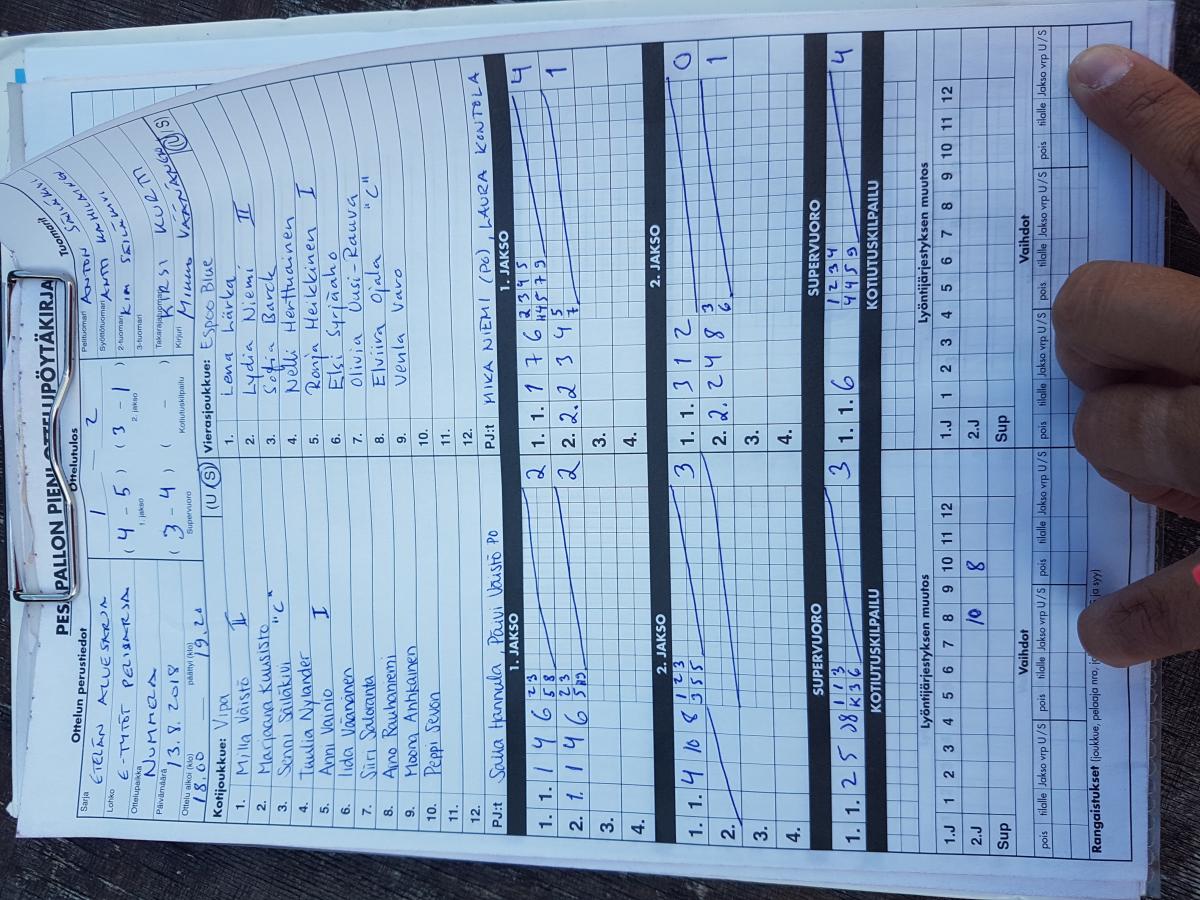 PESÄPALLON PIENI OTTELUPÖYTÄKIRJA
Ottelun perustiedot
Sarja ETELÄN ALUESARJA
Lohko E-TYTÖT PELISARJA
Ottelupaikka NUMMELA
Päivämäärä 13.8.2018
Ottelu alkoi (klo) 18.00 päättyi (klo) 19.20
Ottelutulos
1 2
( 4 - 5 ) ( 3 - 1 )
1. jakso 2. jakso
( 3 - 4 ) ( - )
Supervuoro Kotiutuskilpailu
Tuomarit
Pelituomari ANTON
Syöttötuomari ANTTI
2-tuomari KIM
3-tuomari
Takarajatuomari KIRSI KURTI
Kirjuri Minna VÄÄNÄNEN U/S
Kotijoukkue: Vipa (U/S)
1. Milla Väistö II
2. Marjaana Kuusisto
3. Senni Säiläkivi "C"
4. Tuulia Nylander
5. Anni Vainio I
6. Iida Väänänen
7. Siiri Saloranta
8. Aino Rauhaniemi
9. Moona Anhkainen
10. Peppi Sevon
11.
12.
PJ:t Salla Hannula, Päivi Väistö PO
Vierasjoukkue: Espoo Blue
1. Lena Lärka
2. Lydia Niemi II
3. Sofia Barck
4. Nelli Herttuainen
5. Ronja Heikkinen I
6. Elsi Syrjäaho
7. Olivia Uusi-Rauva
8. Elviira Ojala "C"
9. Venla Varo
10.
11.
12.
PJ:t MIKA NIEMI (PO), LAURA KONTOLA
1. JAKSO 1. JAKSO
1. 1. 1 4 6 2 3 5 8 2 1. 1. 1 7 6 2 3 4 5 4 4 5 7 9 4
2. 1. 1 4 6 2 3 2 2. 2. 2 3 4 5 7 1
3. 3.
4. 4.
2. JAKSO 2. JAKSO
1. 1. 4 10 8 1 2 3 3 5 5 3 1. 1. 3 1 2 0
2. 2. 2. 2 4 8 3 6 1
3. 3.
4. 4.
SUPERVUORO SUPERVUORO
1. 1. 2 5 8 1 1 3 K 3 6 3 1. 1. 6 1 2 3 4 4 4 5 9 4
KOTIUTUSKILPAILU KOTIUTUSKILPAILU
Lyöntijärjestyksen muutos Lyöntijärjestyksen muutos
1.J 1 2 3 4 5 6 7 8 9 10 11 12 1.J 1 2 3 4 5 6 7 8 9 10 11 12
2.J 10 8 2.J
Sup Sup
Vaihdot Vaihdot
pois tilalle Jakso vrp U/S pois tilalle Jakso vrp U/S pois tilalle Jakso vrp U/S pois tilalle Jakso vrp U/S
Rangaistukset (joukkue, pelaaja nro, ja syy)